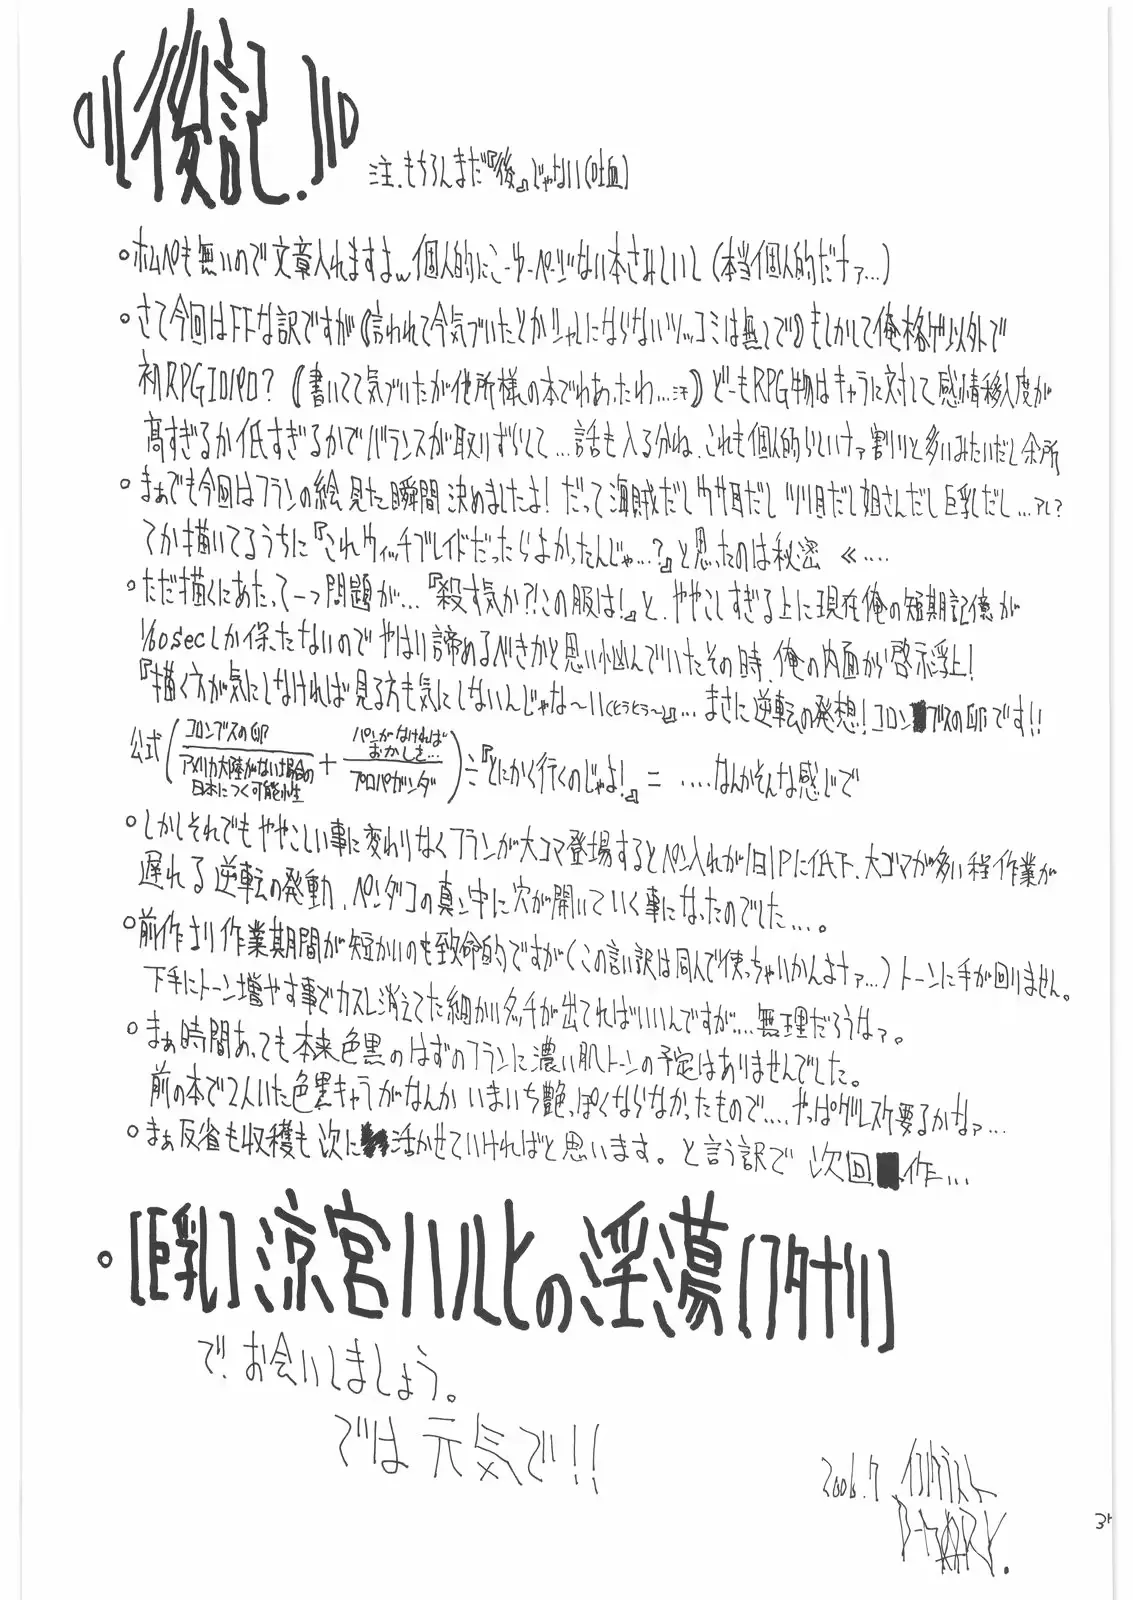 後記.
注.もちろんまだ『後』じゃない(吐血)
。ホムペも無いので文章入れますよw 個人的にこーゆーページない本さみしいし(本当個人的だナァ…)
。さて今回はFFな訳ですが(言われて今気づいたとかシャレにならないツッコミは無しで)もしかして俺格ゲ以外で
初RPGエロパロ?(書いてて気づいたが他所様の本でわあったわ…汗)どーもRPG物はキャラに対して感情移入度が
高すぎるか低すぎるかでバランスが取りずらくて…話も入る分ね、これも個人的らしいナァ割りと多いみたいだし余所
。まぁでも今回はフランの絵見た瞬間決めましたよ!だって海賊だしウサ耳だしツリ目だし姐さんだし巨乳だし…アレ?
てか描いてるうちに『これウィッチブレイドだったらよかったんじゃ…?』と思ったのは秘密 《‥‥
。ただ描くにあたって一つ問題が…『殺す気か?!この服は!』と、ややこしすぎる上に現在俺の短期記憶が
1/60secしか保たないのでやはり諦めるべきかと思い悩んでいたその時、俺の内面から啓示浮上!
『描く方が気にしなければ見る方も気にしないんじゃな〜い(ヒラヒラ〜)』…まさに逆転の発想!コロンブスの卵です!!
公式(コロンブスの卵/アメリカ大陸がない場合の日本につく可能性 + パンがなければおかしを…/プロパガンダ)÷『とにかく行くのじゃよ!』= ‥‥なんかそんな感じで
。しかしそれでもややこしい事に変わりなくフランが大コマ登場するとペン入れが1日1Pに低下、大ゴマが多い程作業が
遅れる逆転の発動、ペンダコの真ン中に穴が開いていく事になったのでした‥‥。
。前作より作業期間が短かいのも致命的ですが(この言い訳は同人で使っちゃいかんよナァ…)トーンに手が回りません。
下手にトーン増やす事でカスレ消えてた細かいタッチが出てればいいんですが‥‥無理だろうなァ。
。まぁ時間あっても本来色黒のはずのフランに濃い肌トーンの予定はありませんでした。
前の本で2人いた色黒キャラがなんかいまいち艶っぽくならなかったもので‥‥やっぱグレスケ要るかなァ…
。まぁ反省も収穫も次に活かせていければと思います。と言う訳で 次回 作…
。[巨乳]涼宮ハルヒの淫蕩[フタナリ]
で、お会いしましょう。
では元気で!!
2006.7